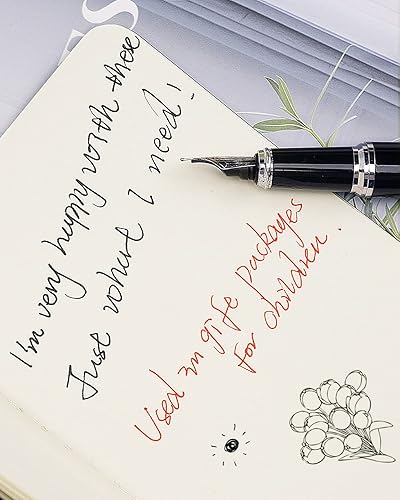 I'm very happy with these
Just what I need!
Used in gife packages
for children.